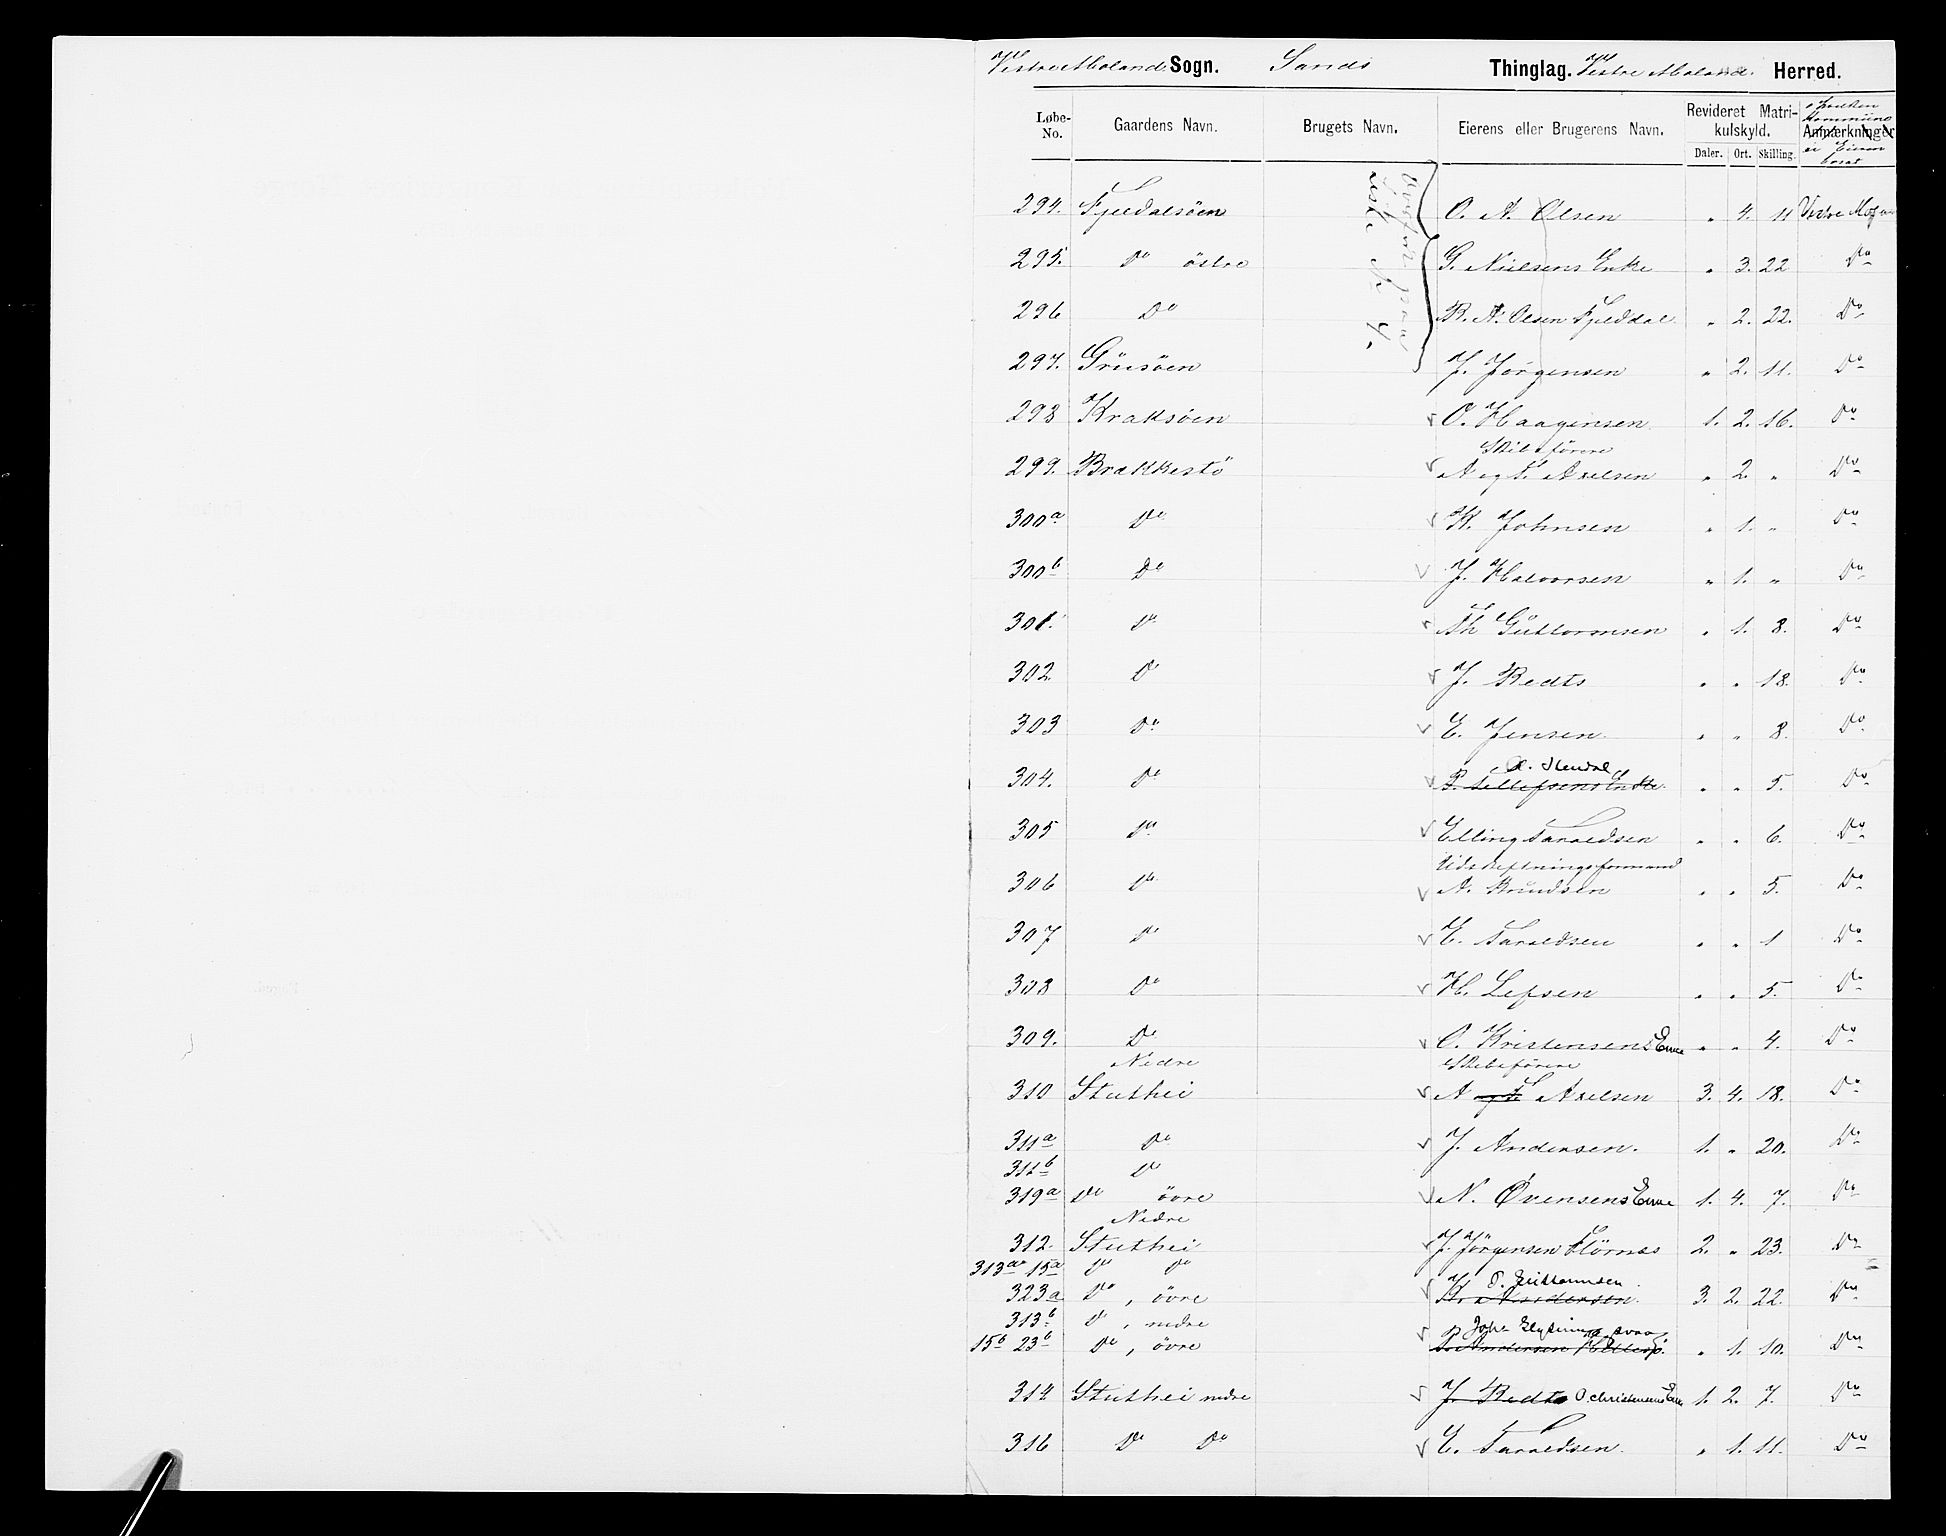 Vestre Moland Sogn. Sands Thinglag. Vestre Moland Herred.
Løbe-No. Gaardens Navn. Brugets Navn. Eierens eller Brugerens Navn. Revideret Matrikulskyld. Anmærkninger
Daler. Ort. Skilling.
i hvilken Kommune er Eieren bosat
294. Fjeldalsöen O. N. Olsen " 4. 11 Vestre Mol
295. Do östre G. Nielsens Enke " 3. 22 Do
296 Do R. N. Olsen Fjelddal " 2. 22. Do
297. Grüsöen J. Jörgensen " 2. 11. Do
298 Kraksöen O. Haagensen 1. 2. 16. Do
Skibsförere
299. Brækkestö A og T. Axelsen " 2. " Do
300a Do K. Johnsen " 1. " Do
300b Do J. Halvorsen " 1. " Do
301. Do Th Guttormsen " 1. 8. Do
302. Do J. Redts " " 18. Do
303 Do E. Jensen " " 8. Do
304. Do P. Tellefsens Enke " " 5. Do
305 Do Elling Taraldsen " " 6. Do
Udskiftningsformand
306 Do N. Knudsen " " 5. Do
307 Do E. Taraldsen " " 1 Do
308 Do H. Lefsen " " 5. Do
309. Do O. Kristensens Enke " " 4. Do
Nedre Skibsförere
310 Stuthei A og T. Axelsen 3. 4. 18. Do
311a Do J. Andersen. 1. " 20. Do
311b Do
319a Do övre N. Ovensens Enke 1. 4. 7. Do
Nedre
312. Stuthei J. Jörgensen Flörnæs 2. " 23. Do
313a 15a Do Do
O. Guttormsen
323a Do, övre K. Andersen. 3. 2. 22. Do
313b Do, nedre
15b 23b Do, övre Andersen " 1. 10. Do
314 Stuthei nedre J. Redts O. Christensens Enke 1. 2. 7. Do
316 Do Do E. Taraldsen. " 1. 11. Do